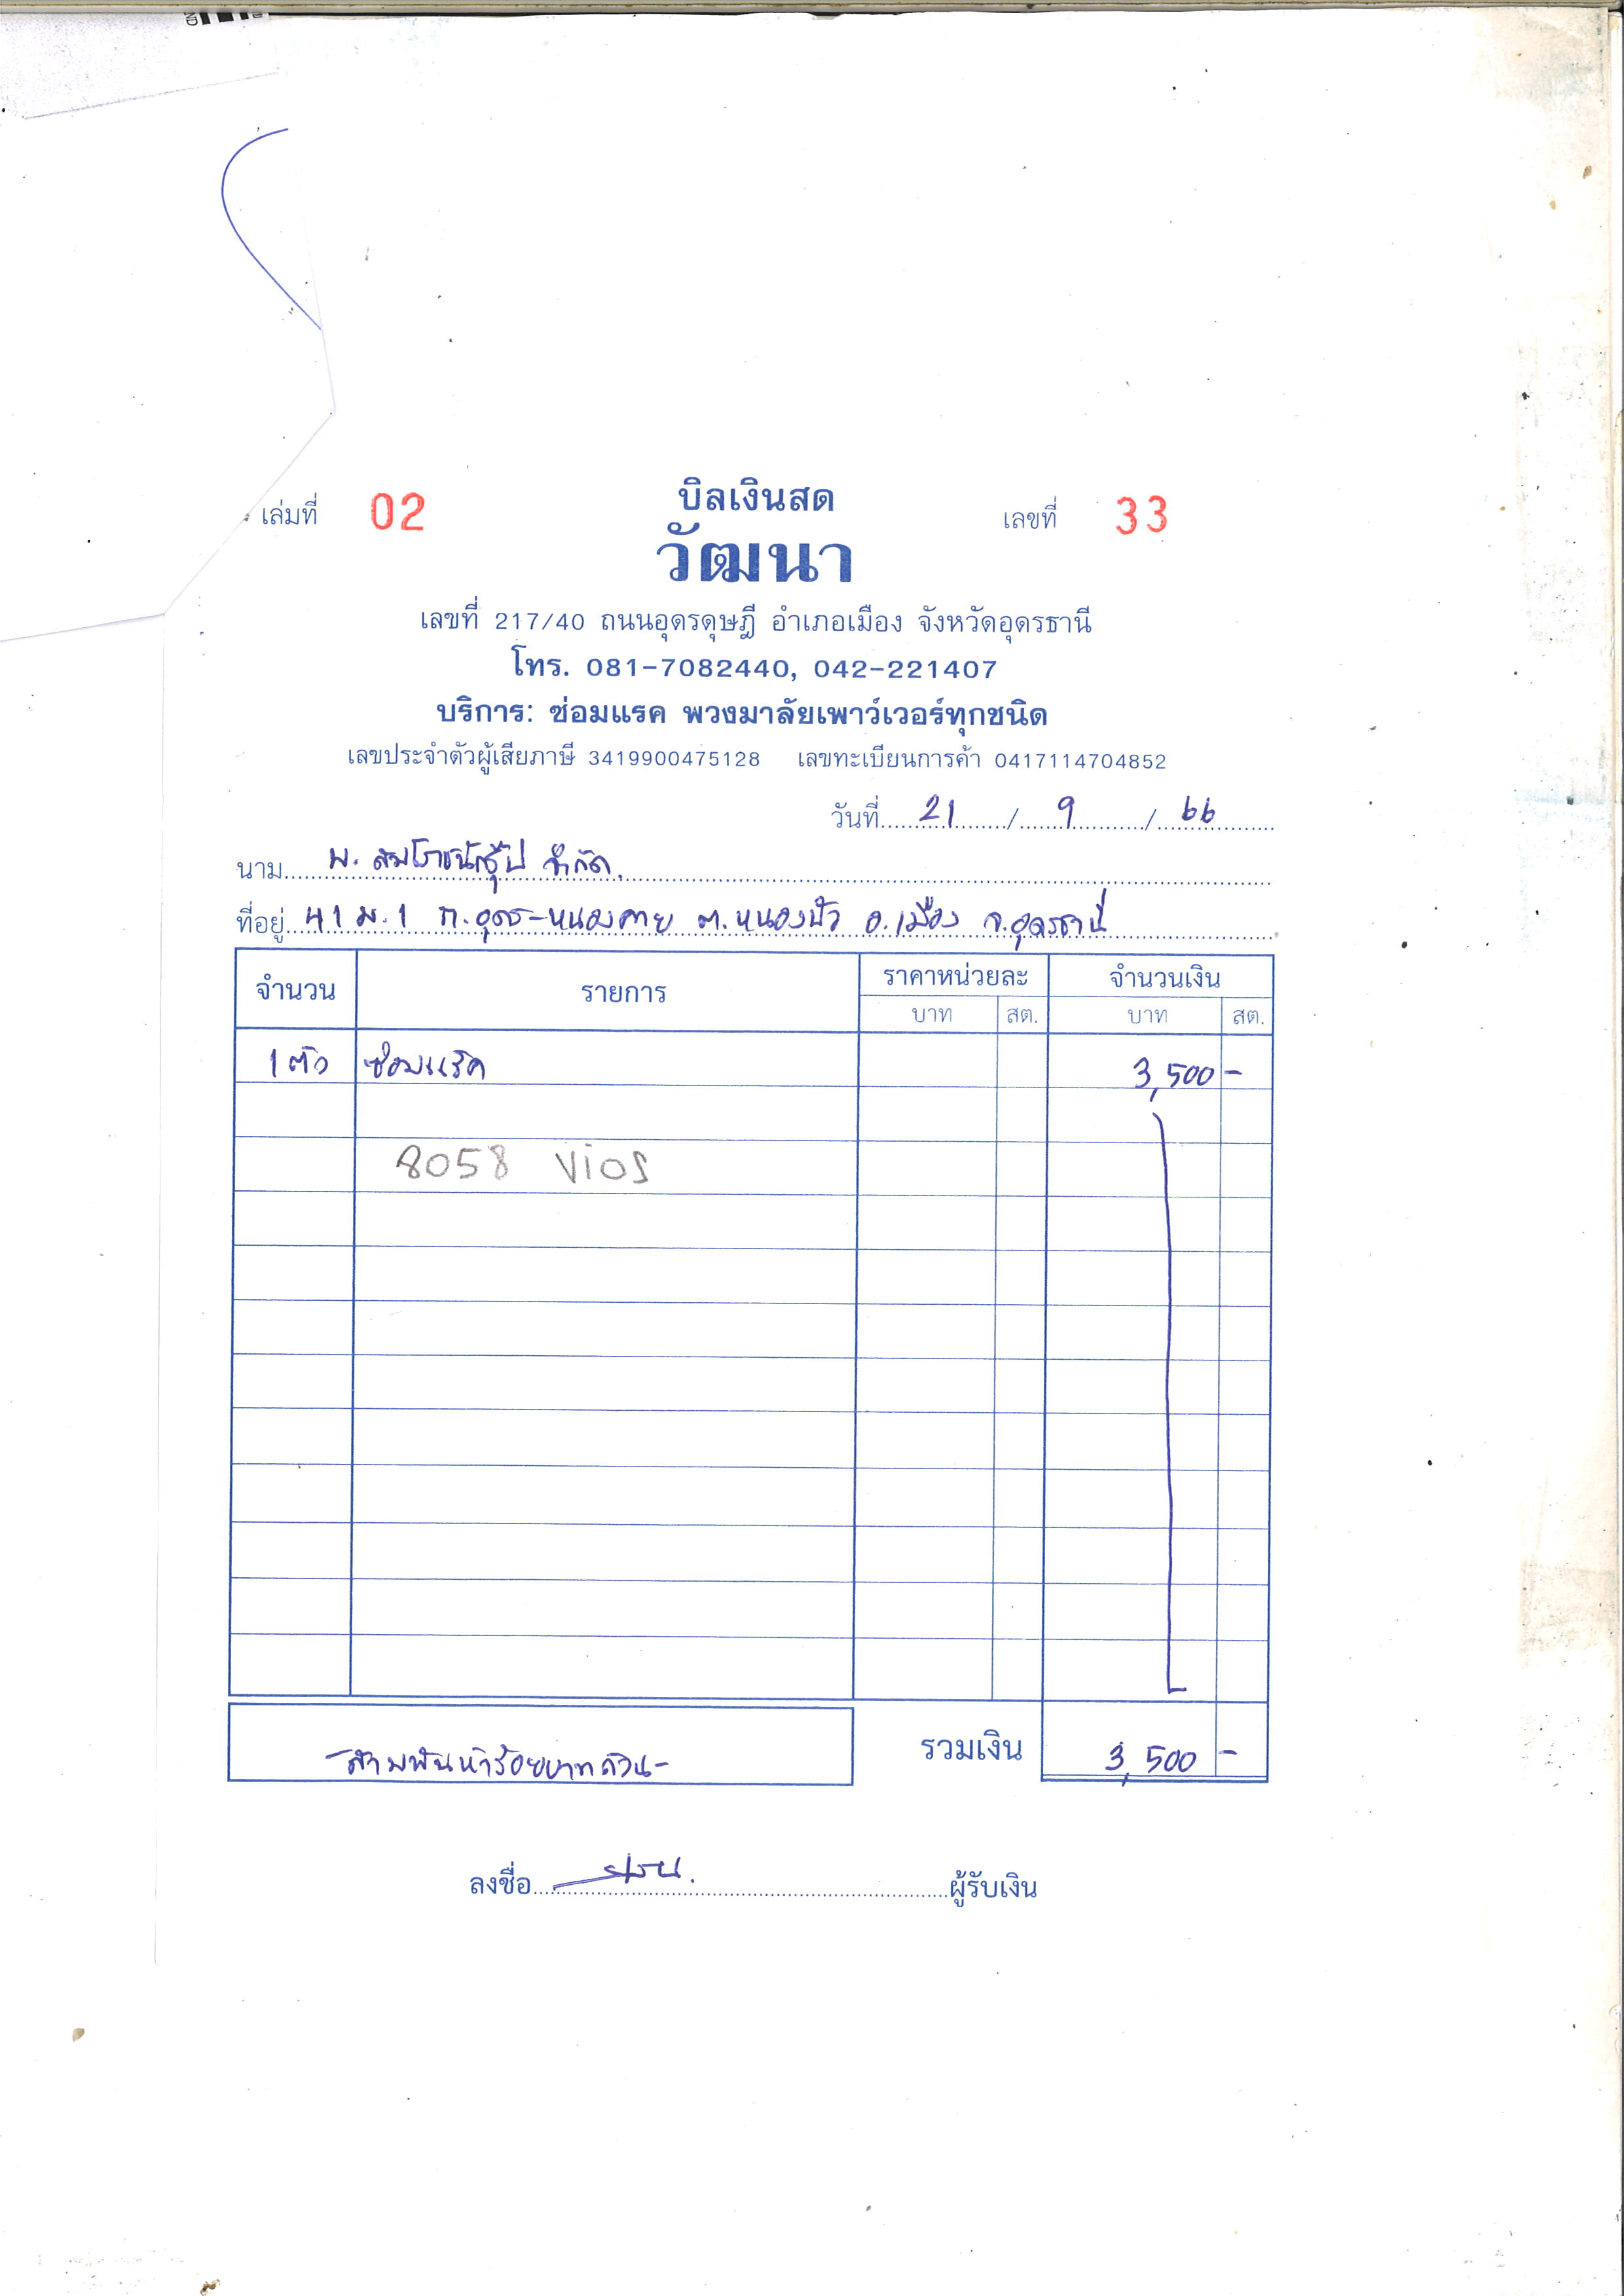 บิลเงินสด
เล่มที่ 02 เลขที่ 33
วัฒนา
เลขที่ 217/40 ถนนอุดรดุษฎี อำเภอเมือง จังหวัดอุดรธานี
โทร. 081-7082440, 042-221407
บริการ: ซ่อมแรค พวงมาลัยเพาว์เวอร์ทุกชนิด
เลขประจำตัวผู้เสียภาษี 3419900475128 เลขทะเบียนการค้า 0417114704852
วันที่ 21 / 9 / 66
นาม จำกัด.
ที่อยู่ 41 ม.1 ถ.อุดร-หนองคาย ต.หนองบัว อ.เมือง จ.อุดรธานี
จำนวน รายการ ราคาหน่วยละ จำนวนเงิน
บาท สต. บาท สต.
1 ตัว ซ่อมแร็ค 3,500 -
8058 Vios
-สามพันห้าร้อยบาทถ้วน- รวมเงิน 3,500 -
ลงชื่อ ผู้รับเงิน